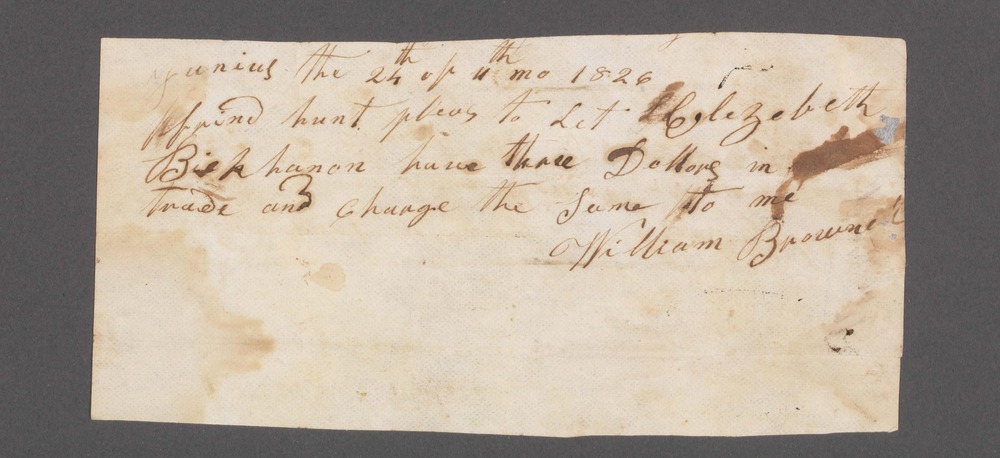 Junius the 24th of 11th mo 1826
ffrind hunt pleas to Let Elizebeth
Bickhanon have three Dollors in
trade and Charge the Same to me
William Brownel